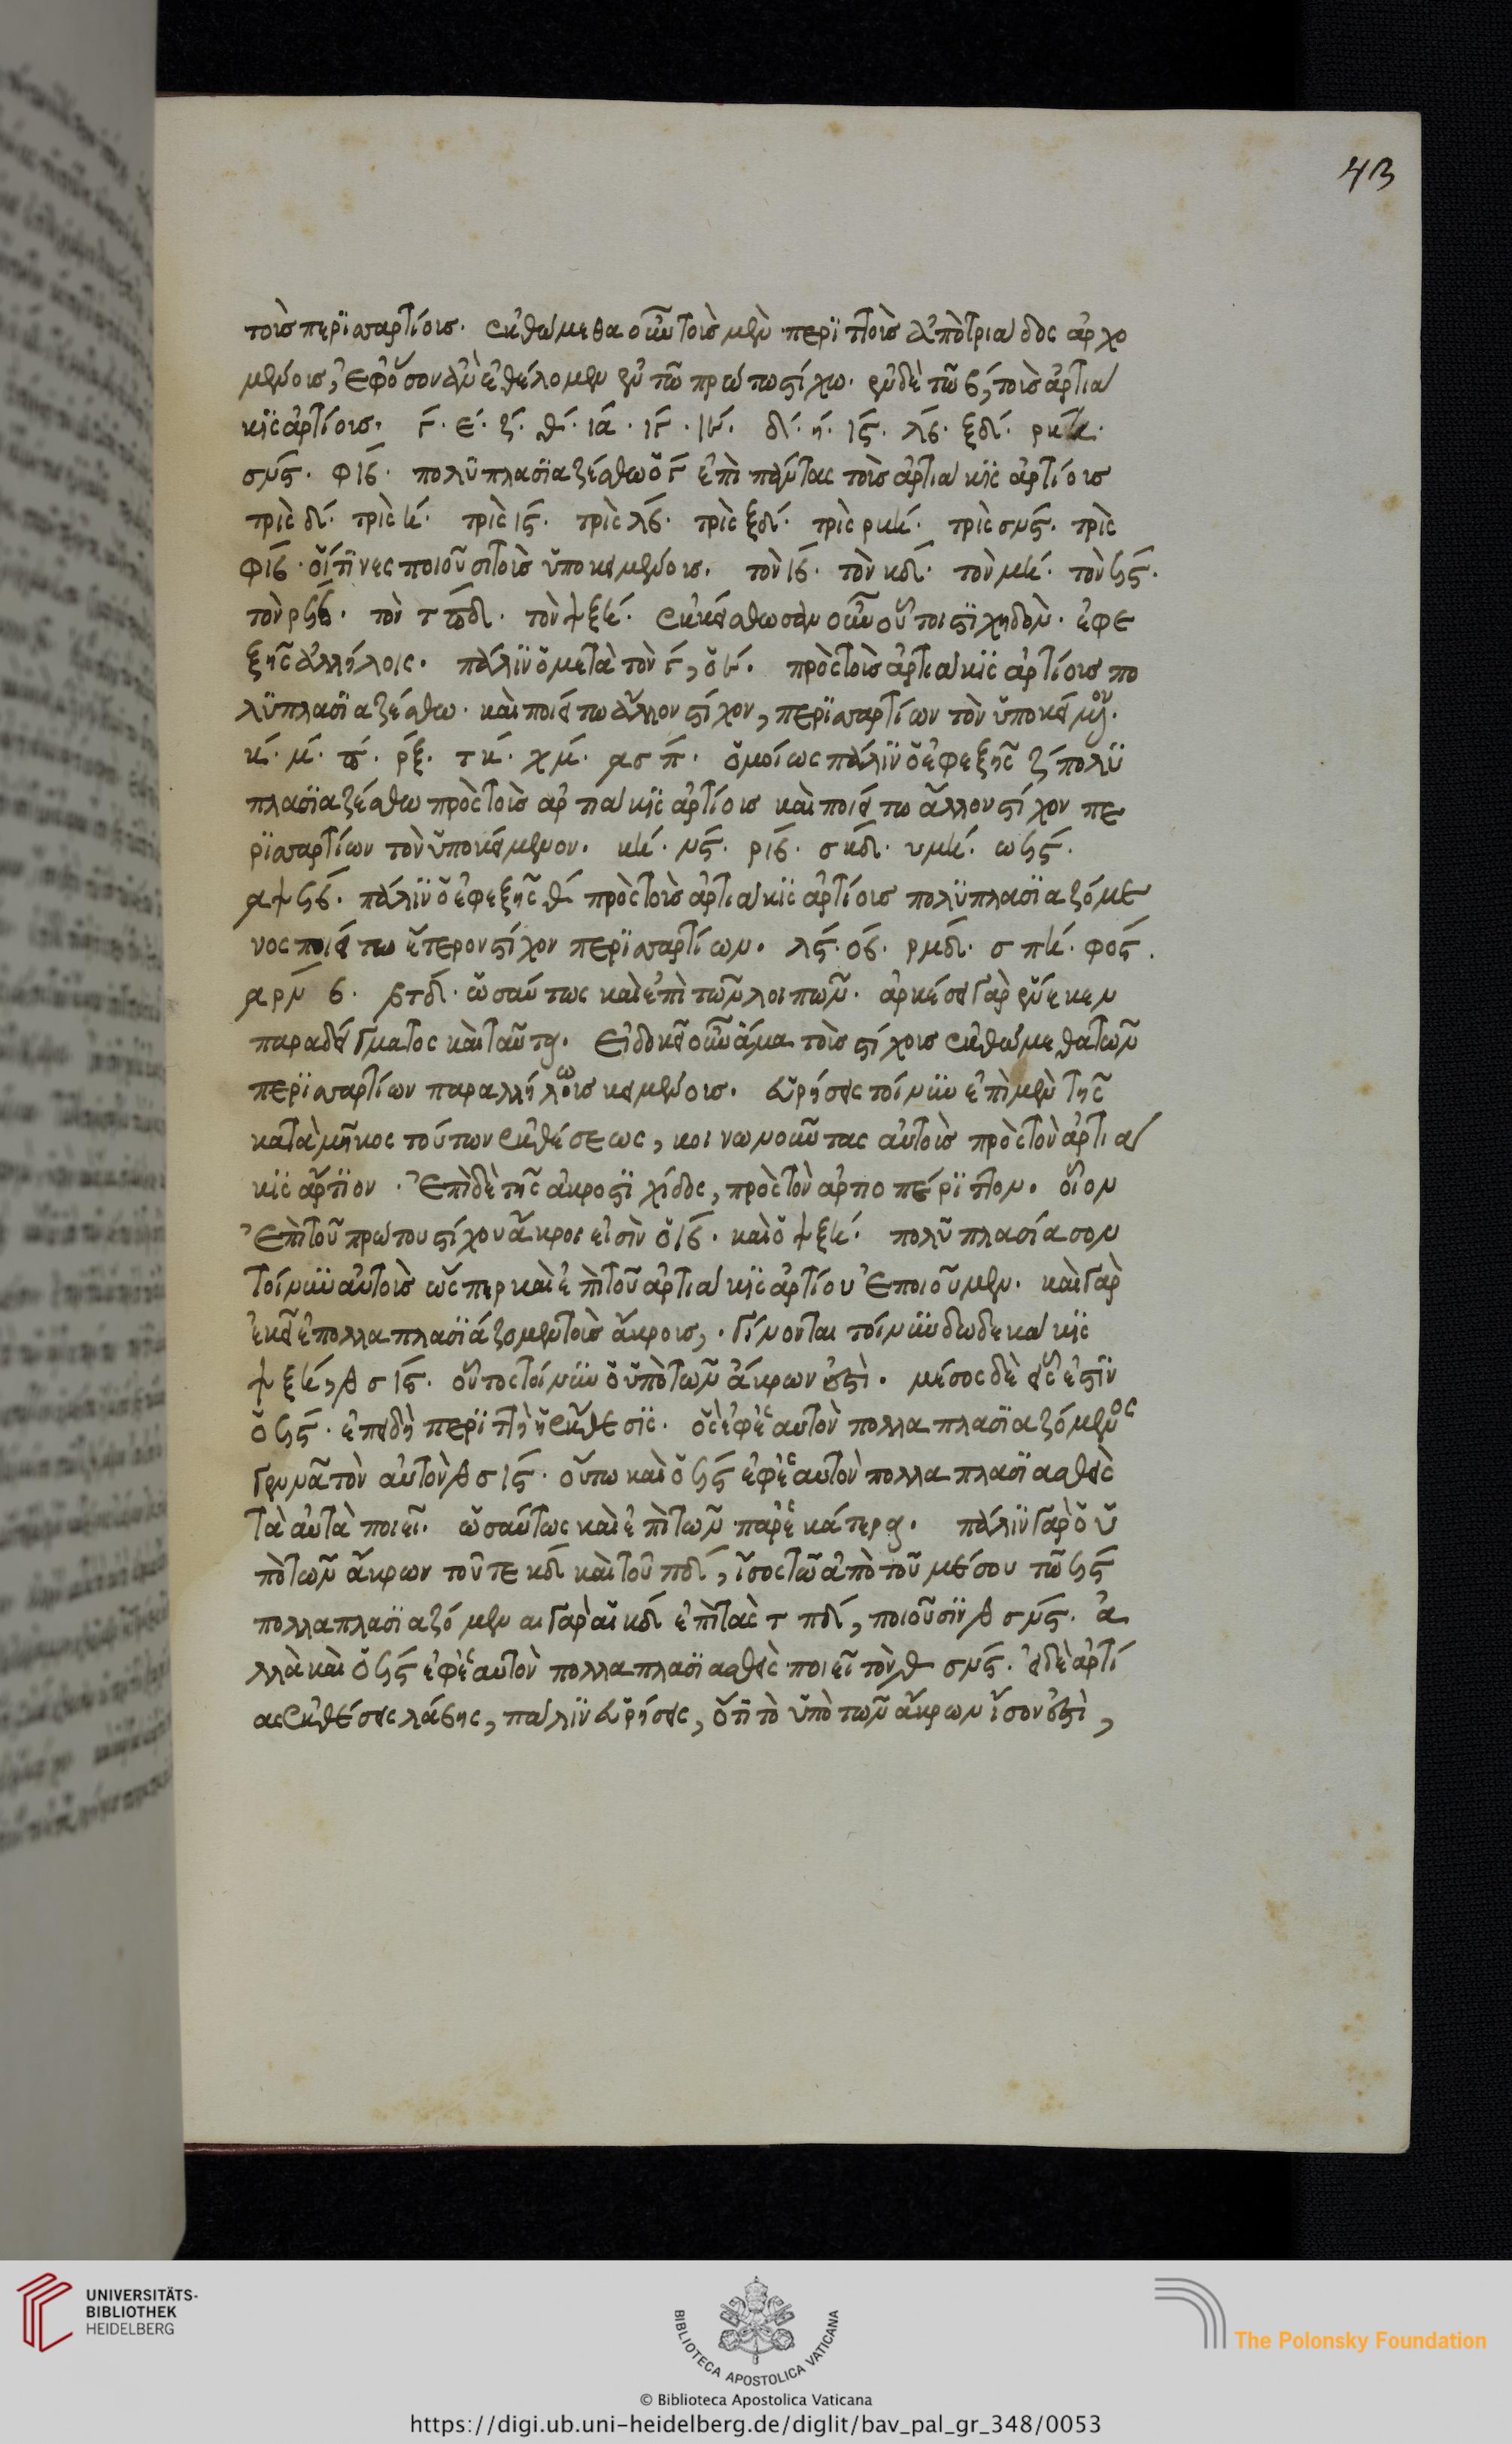 43
τοὺς περϊσσαρτίους. ἐκθώμεθα οὖν τοὺς μὲν περϊττοὺς ἀπὸ τριάδος ἀρχο
μένους, ἐφ' ὅσον ἂν ἐθέλομεν ἐν τῶ πρώτω στίχω. ἐν δὲ τῶ β, τοὺς ἀρτιά
κϊς ἀρτίους. γ. ε. ζ. θ. ια. ιγ. ιε. δ. η. ις. λβ. ξδ. ρκη.
σνς. φιβ. πολϋπλασϊαζέσθω ὁ γ ἐπὶ πάντας τοὺς ἀρτιάκϊς ἀρτίους
τρὶς δ. τρὶς η. τρὶς ις. τρὶς λβ. τρὶς ξδ. τρὶς ρκη. τρὶς σνς. τρὶς
φιβ. οἵτϊνες ποιοῦσι τοὺς ὑποκειμένους. τὸν ιβ. τὸν κδ. τὸν μη. τὸν ϟς.
τὸν ρϟβ. τὸν τπδ. τὸν ψξη. ἐκκείσθωσαν οὖν οὗτοι στϊχηδὸν. ἐφε
ξῆς ἀλλήλοις. πάλϊν ὁ μετὰ τὸν γ, ὁ ε. πρὸς τοὺς ἀρτιάκϊς ἀρτίους πο
λϋπλασϊαζέσθω. καὶ ποιείτω ἄλλον στίχον, περϊσσαρτίων τὸν ὑποκείμενον.
κ. μ. π. ρξ. τκ. χμ. ͵ασπ. ὁμοίως πάλϊν ὁ ἐφεξῆς ζ πολϋ
πλασϊαζέσθω πρὸς τοὺς ἀρτιάκϊς ἀρτίους καὶ ποιείτω ἄλλον στίχον πε
ρϊσσαρτίων τὸν ὑποκείμενον. κη. νς. ριβ. σκδ. υμη. ωϟς.
͵αψϟβ. πάλϊν ὁ ἐφεξῆς θ πρὸς τοὺς ἀρτιάκϊς ἀρτίους πολϋπλασϊαζόμε
νος ποιείτω ἕτερον στίχον περϊσσαρτίων. λς. οβ. ρμδ. σπη. φος.
͵αρνβ. ͵βτδ. ὡσαύτως καὶ ἐπὶ τῶν λοιπῶν. ἀρκέσει γὰρ ἕνεκεν
παραδείγματος καὶ ταῦτα. εἰ δοκεῖ οὖν ἅμα τοῖς στίχοις ἐκθώμεθα τῶν
περϊσσαρτίων παραλλήλως κειμένοις. εὑρήσεις τοίνυν ἐπὶ μὲν τῆς
κατὰ μῆκος τούτων ἐκθέσεως, κοινωνοῦντας αὐτοὺς πρὸς τὸν ἀρτιά
κϊς ἄρτϊον. ἐπὶ δὲ τῆς ἀκροστϊχίδος, πρὸς τὸν ἀρτιοπέρϊττον. οἷον
ἐπὶ τοῦ πρώτου στίχου ἄκροι εἰσὶν ὁ ιβ. καὶ ὁ ψξη. πολῦπλασίασον
τοίνυν αὐτοὺς ὥσπερ καὶ ἐπὶ τοῦ ἀρτιάκϊς ἀρτίου ἐποιοῦμεν. καὶ γὰρ
ἐκεῖ ἐπολλαπλασϊάζομεν τοὺς ἄκρους,. γίνονται τοίνυν δωδεκάκϊς
ψξη, ͵θσις. οὗτος τοίνυν ὁ ὑπὸ τῶν ἄκρων ἐστὶ. μέσος δὲ εἷς ἐστϊν
ὁ ϟς. ἐπειδὴ περϊττὴ ἡ ἔκθεσϊς. ὃς ἐφ' ἑαυτὸν πολλαπλασϊαζόμενος
γεννᾶ τὸν αὐτὸν ͵θσις. οὕτω καὶ ὁ ϟς ἐφ' ἑαυτὸν πολλαπλασϊασθεὶς
τὰ αὐτὰ ποιεῖ. ὡσαύτως καὶ ἐπὶ τῶν παρ' ἑκάτερα. πάλϊν γὰρ ὁ ὑ
πὸ τῶν ἄκρων τοῦ τε κδ καὶ τοῦ πδ, ἴσος τῶ ἀπὸ τοῦ μέσου τῶ ϟς
πολλαπλασϊαζόμεν αι γὰρ αἱ κδ ἐπὶ τὰς τπδ, ποιοῦσϊν ͵θσνς. ἀ
λλὰ καὶ ὁ ϟς ἐφ' ἑαυτὸν πολλαπλασϊασθεὶς ποιεῖ τὸν ͵θσνς. εἰ δὲ ἀρτί
ας ἐκθέσεις λάβης, πάλϊν εὑρήσεις, ὅτϊ τὸ ὑπὸ τῶν ἄκρων ἴσον ἐστὶ,
UNIVERSITÄTS-
BIBLIOTHEK
HEIDELBERG
BIBLIOTECA APOSTOLICA VATICANA
The Polonsky Foundation
© Biblioteca Apostolica Vaticana
https://digi.ub.uni-heidelberg.de/diglit/bav_pal_gr_348/0053